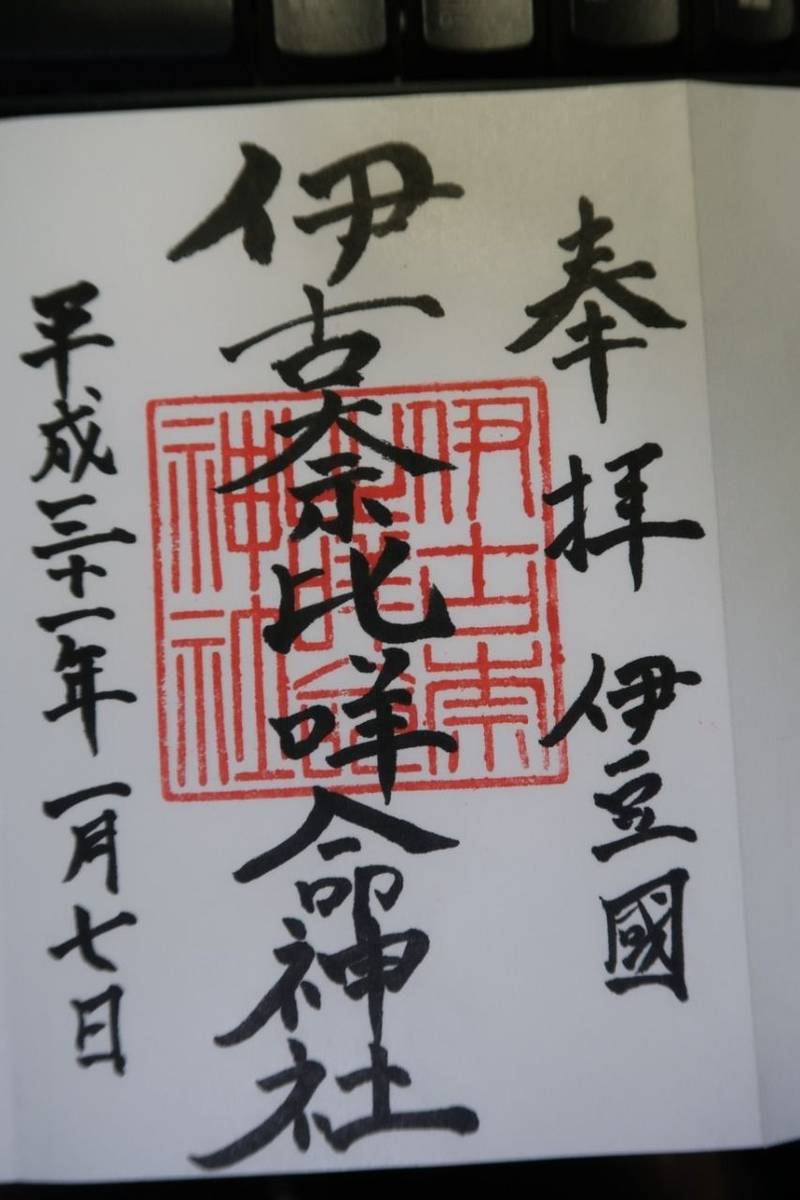 奉拝 伊豆國
伊古奈比咩命神社
平成三十一年一月七日
伊古奈
比咩命
神社